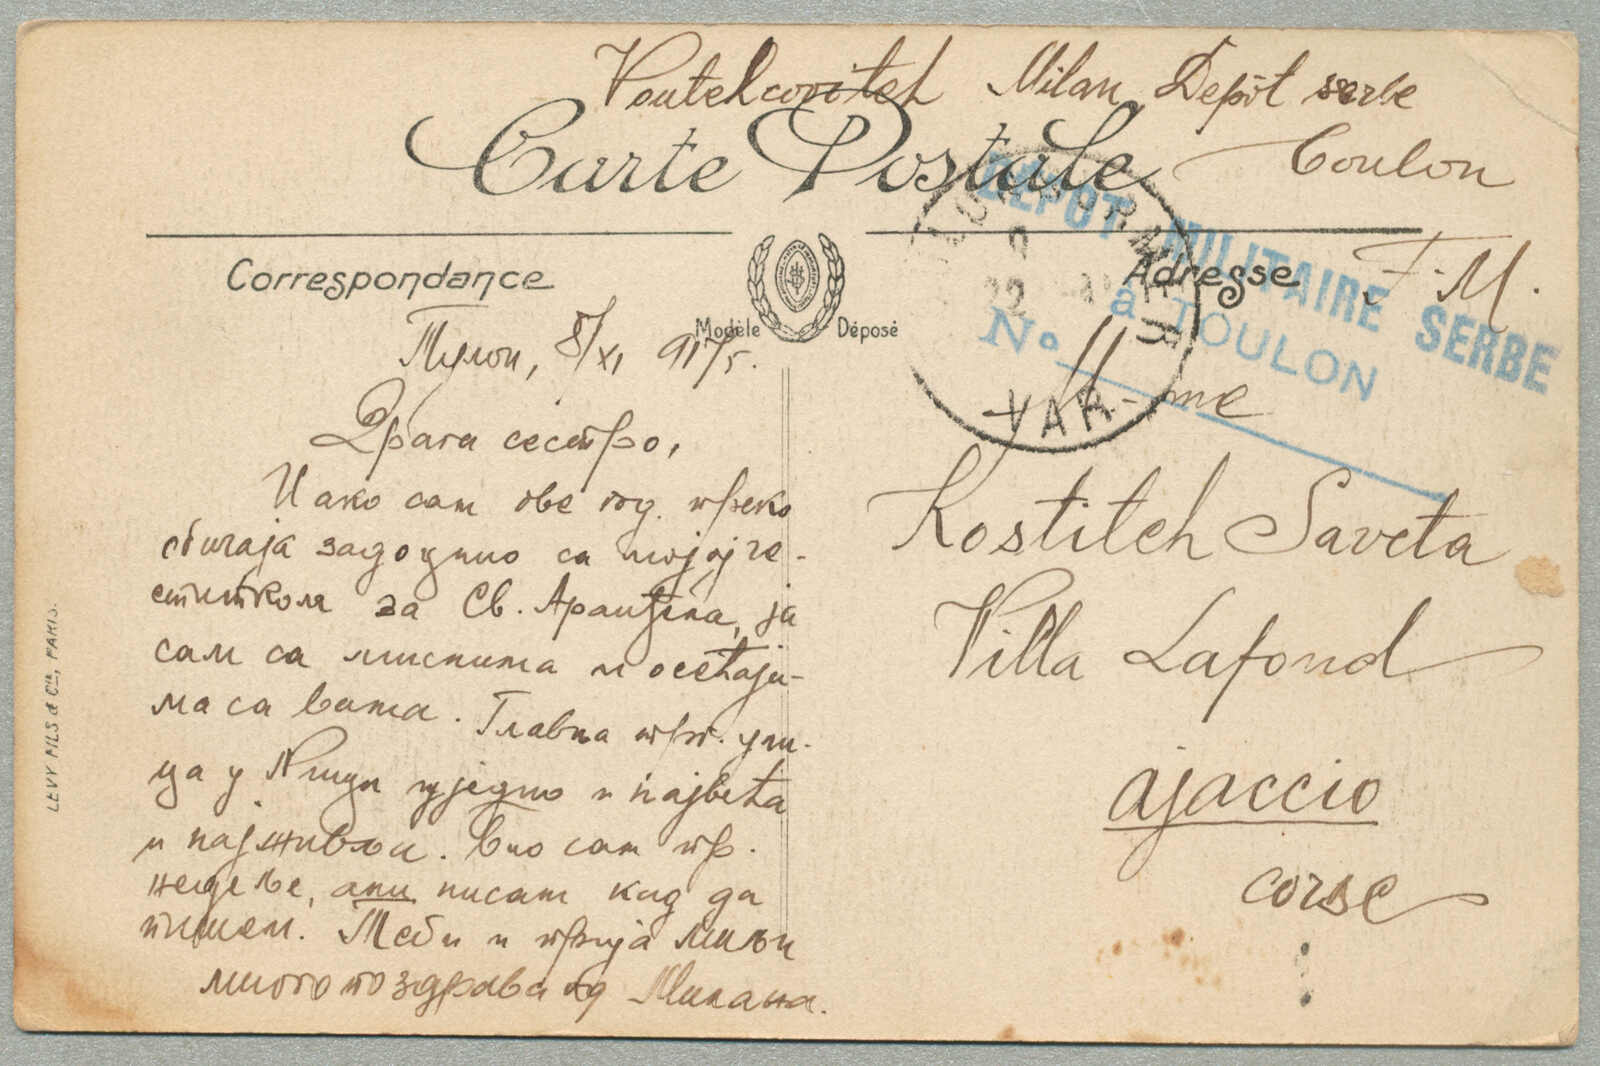 Voutchcovitch Milan Depôt serbe
Toulon
Carte Postale
Correspondance
Modèle Déposé
Adresse
F. M.
DÉPÔT MILITAIRE SERBE
à TOULON
No
VAR
Тулон, 8/XI 915.
Драга сестро,
И ако сам ове год. преко
обичаја задоцнио са мојој че-
ститком за Св. Аранђела, ја
сам са мислима и осећаји-
ма са вама. Главна трг. ули-
ца у Ници уједно и највећа
и најживља. Био сам пр.
недеље, али нисам кад да
пишем. Теби и прија Мили
много поздрава од Милана.
M-me
Kostitch Saveta
Villa Lafond
ajaccio
corse
LEVY FILS & Cie, PARIS.